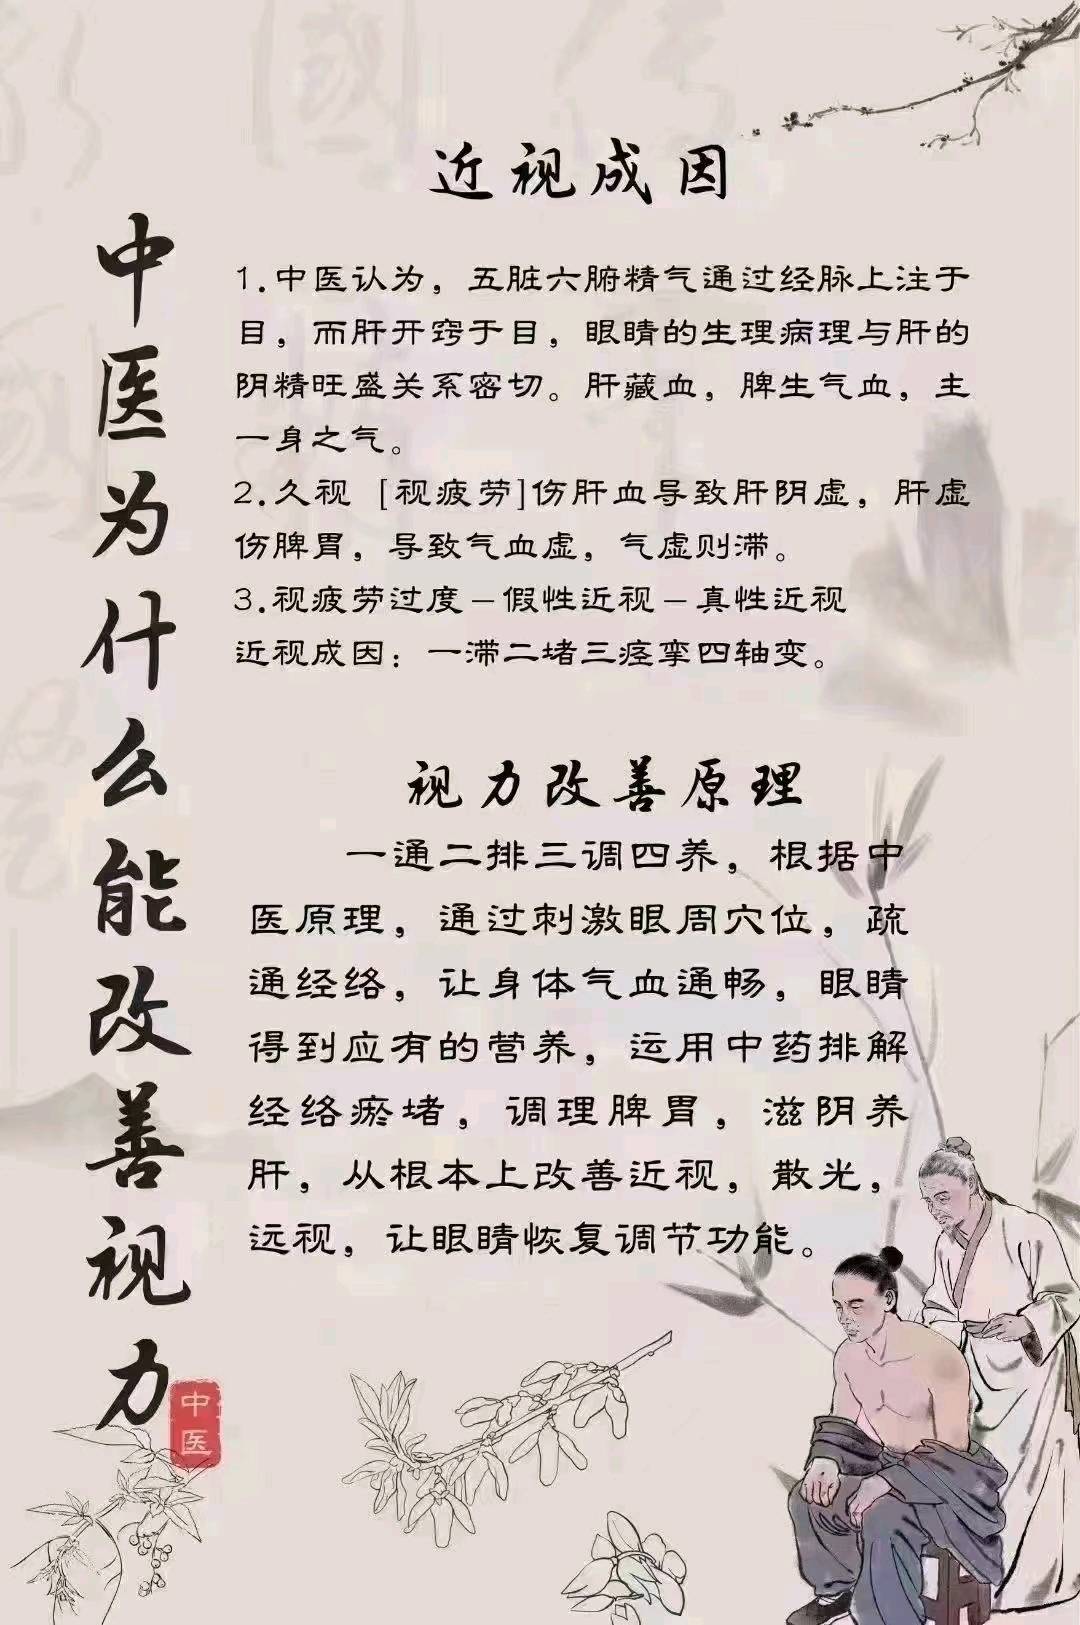 中医为什么能改善视力
中医
近视成因
1.中医认为，五脏六腑精气通过经脉上注于
目，而肝开窍于目，眼睛的生理病理与肝的
阴精旺盛关系密切。肝藏血，脾生气血，主
一身之气。
2.久视 [视疲劳]伤肝血导致肝阴虚，肝虚
伤脾胃，导致气血虚，气虚则滞。
3.视疲劳过度–假性近视–真性近视
近视成因：一滞二堵三痉挛四轴变。
视力改善原理
一通二排三调四养，根据中
医原理，通过刺激眼周穴位，疏
通经络，让身体气血通畅，眼睛
得到应有的营养，运用中药排解
经络瘀堵，调理脾胃，滋阴养
肝，从根本上改善近视，散光，
远视，让眼睛恢复调节功能。